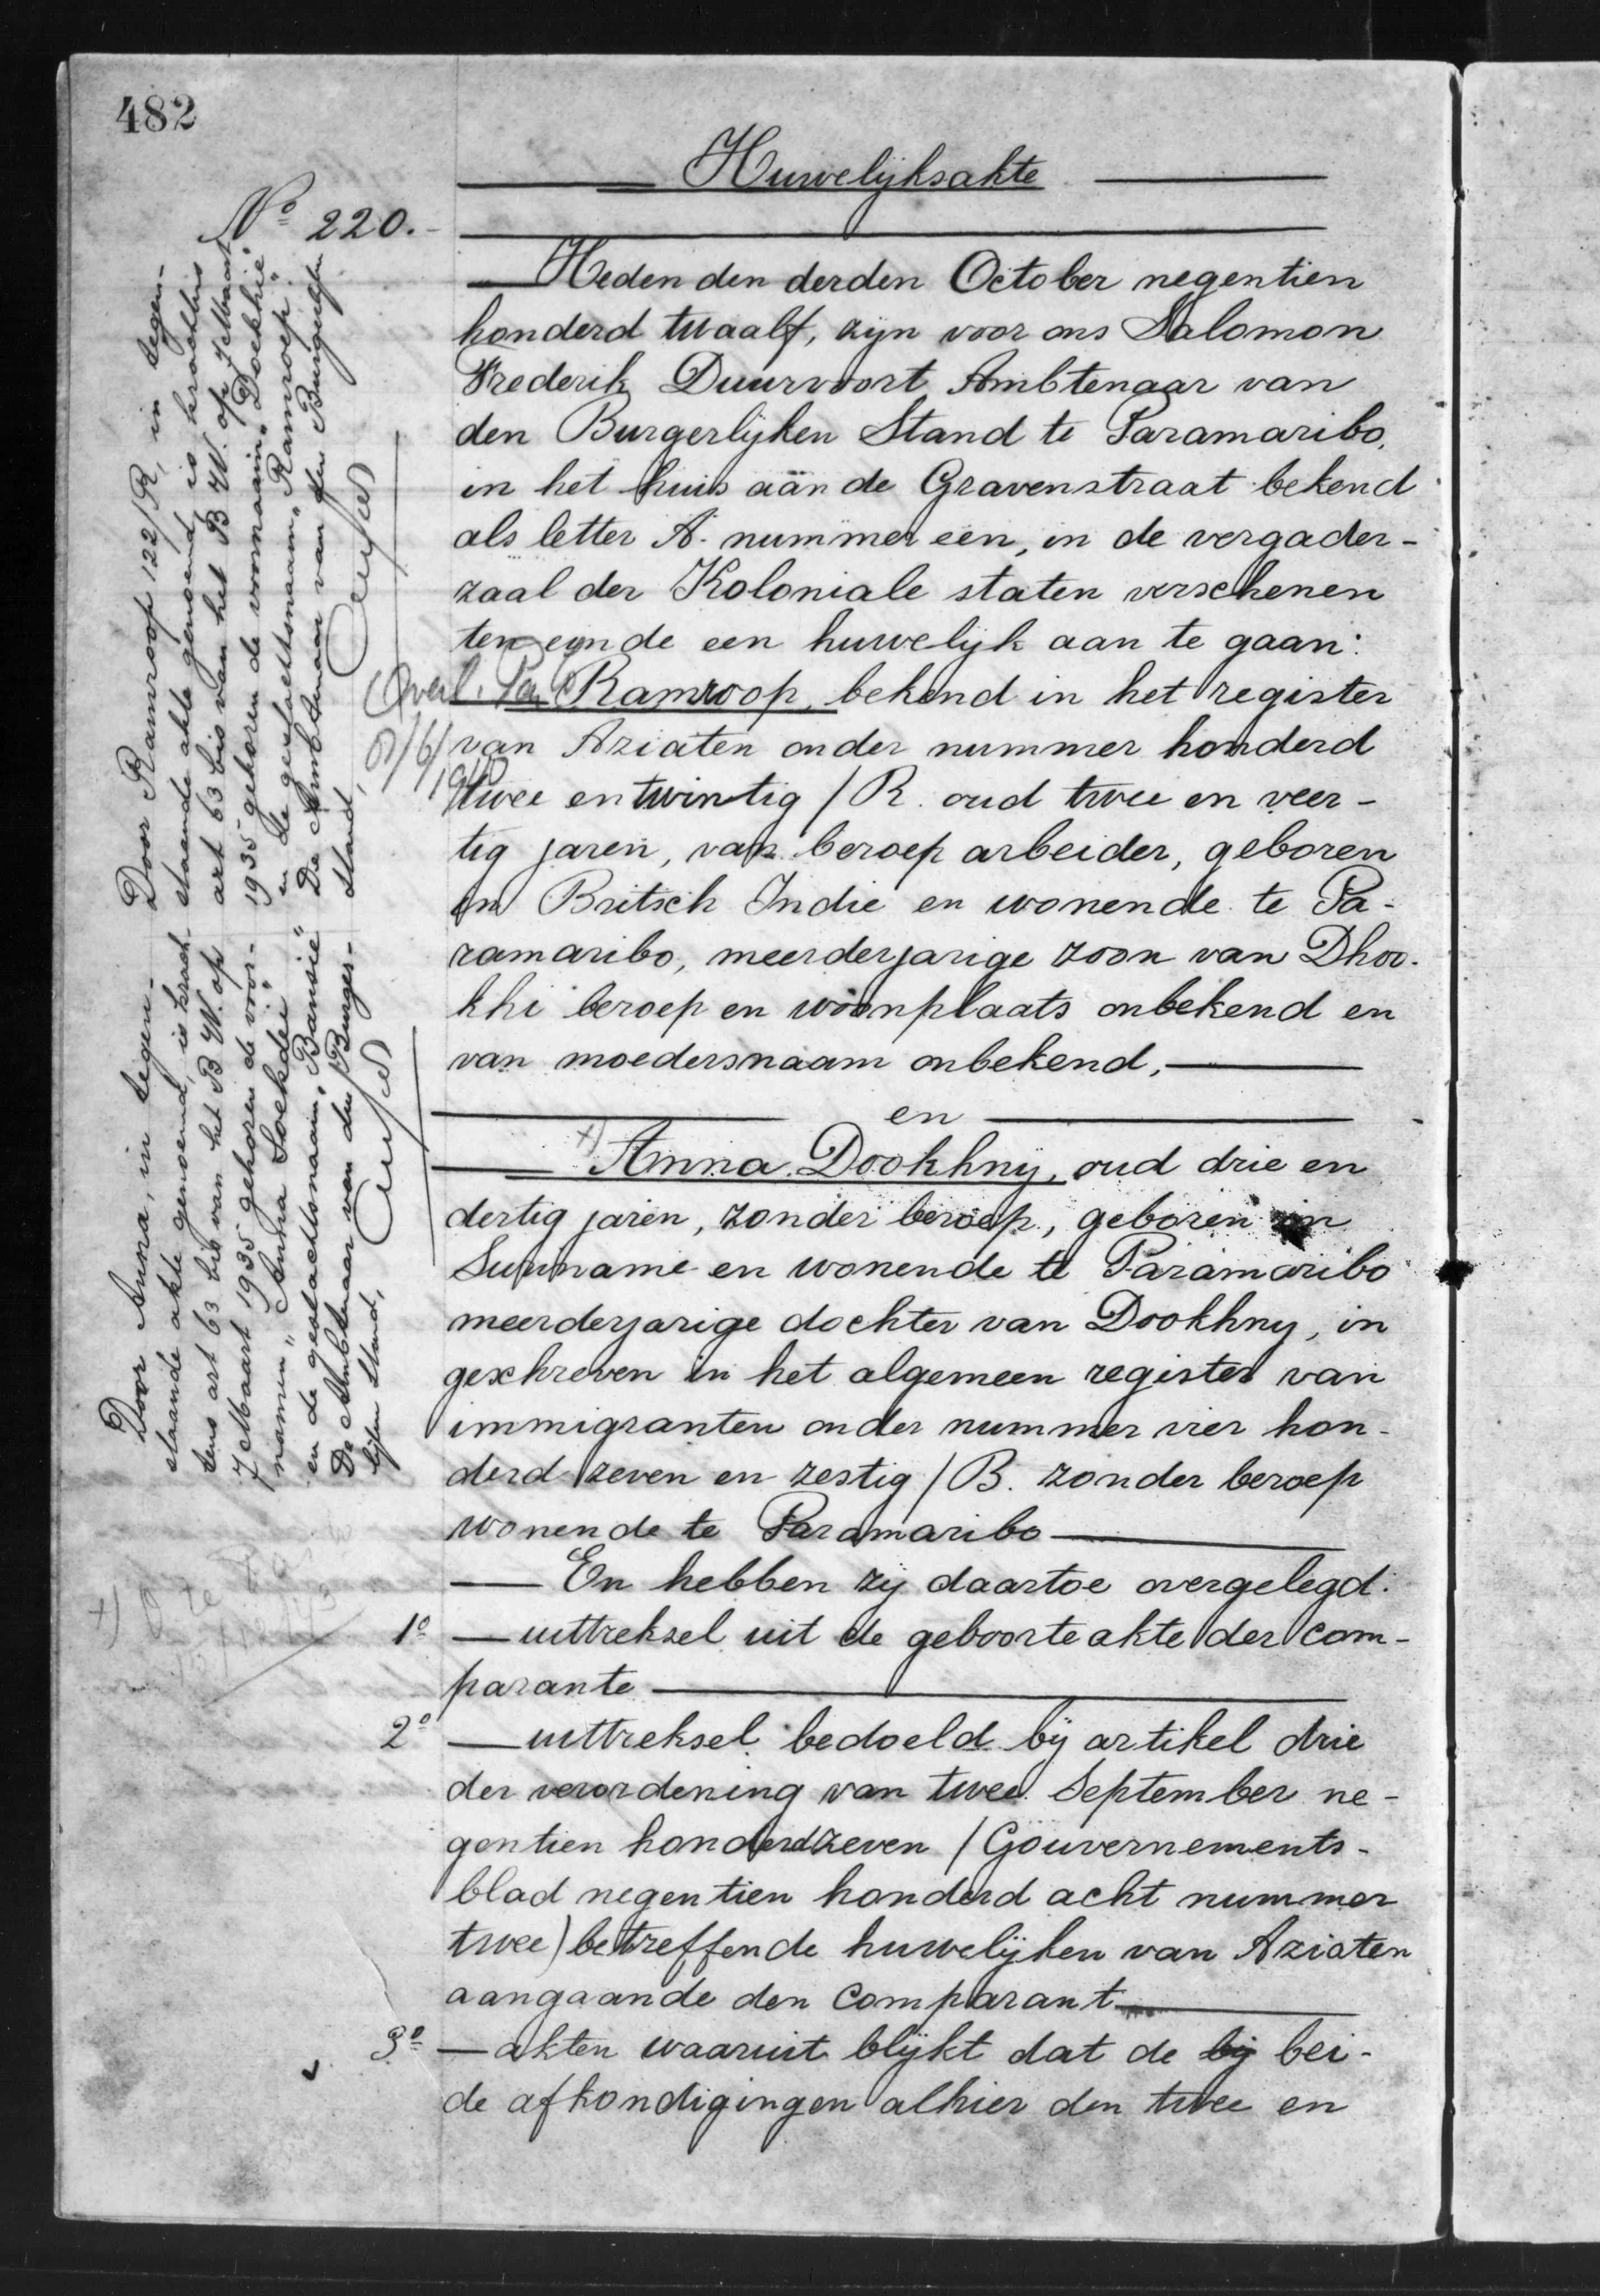 482
Huwelijksakte
No 220.-
Heden den derden October negentien
honderd twaalf, zijn voor ons Salomon
Frederik Duurvoort Ambtenaar van
den Burgerlijken Stand te Paramaribo,
in het huis aan de Gravenstraat bekend
als letter A. nummer een, in de vergader-
zaal der Koloniale staten verschenen
ten einde een huwelijk aan te gaan:
Ramroop, bekend in het register
van Aziaten onder nummer honderd
twee en twintig /R. oud twee en veer-
tig jaren, van beroep arbeider, geboren
in Britsch Indie en wonende te Pa-
ramaribo, meerderjarige zoon van Dhoo-
khi beroep en woonplaats onbekend en
van moedersnaam onbekend,
en
+) Anna Dookhny, oud drie en
dertig jaren, zonder beroep, geboren in
Suriname en wonende te Paramaribo
meerderjarige dochter van Dookhny, in
geschreven in het algemeen register van
immigranten onder nummer vier hon-
derd zeven en zestig /B. zonder beroep
wonende te Paramaribo
En hebben zij daartoe overgelegd:
1o uittreksel uit de geboorte akte der com-
parante
2o uittreksel bedoeld bij artikel drie
der verordening van twee September ne-
gentien honderd zeven (Gouvernements-
blad negentien honderd acht nummer
twee) betreffende huwelijken van Aziaten
aangaande den comparant
3o akten waaruit blijkt dat de bij bei-
de afkondigingen alhier den twee en
Overl. Par
/6/
1940
Door Ramroop 122/R, in tegen-
staande akte genoemd, is krachtens
art 63 bis van het B.W. op 7 Maart
1935 gekozen de voornaam "Doekhie"
en de geslachtsnaam "Ramroep".
De Ambtenaar van den Burgerlijken
Stand,
Door Anna, in tegen-
staande akte genoemd, is krach-
tens art 63 bis van het B.W. op
7 Maart 1935 gekozen de voor-
namen "Anna Soekdei"
en de geslachtsnaam "Bansie"
De Ambtenaar van den Burger-
lijken Stand,
+)